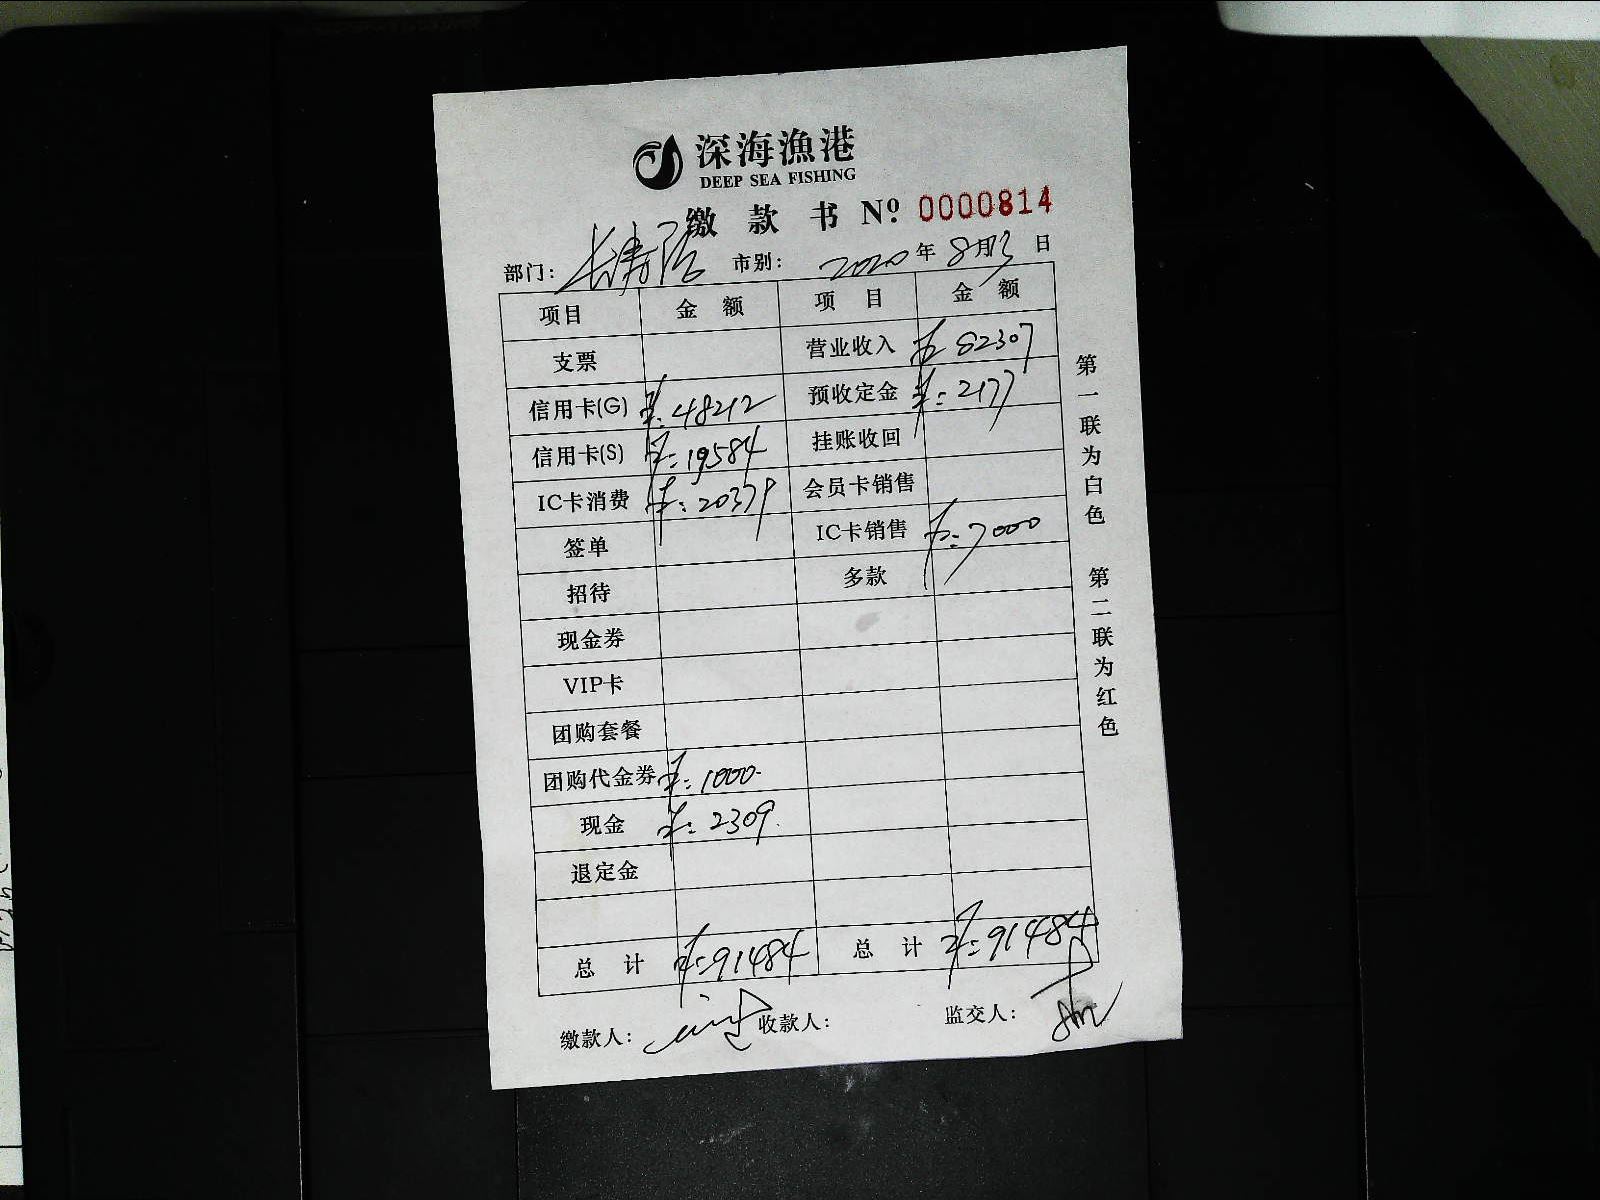 深海漁港
DEEP SEA FISHING
缴款书 Nº 0000814
部门： 长寿路 市别： 2020年8月13日
项目 金额 项目 金额
支票 营业收入 ¥:82307
信用卡(G) ¥:48212 预收定金 ¥:2177
信用卡(S) ¥:19584 挂账收回
IC卡消费 ¥:20379 会员卡销售
签单 IC卡销售 ¥:7000
招待 多款
现金券
VIP卡
团购套餐
团购代金券 ¥:1000-
现金 ¥:2309.
退定金
总计 ¥:91484 总计 ¥:91484
缴款人： 收款人： 监交人：
第一联为白色 第二联为红色